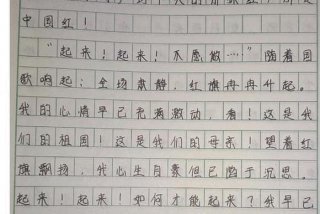 中国红！
“起来！起来！不愿做……”随着国
歌响起：全场肃静，红旗冉冉升起。
我的心情早已充满激动，看！这是我
们的祖国！这是我们的母亲！望着红
旗飘扬，我心生自豪但已陷于沉思。
起来！起来！如何才能起来？我早已